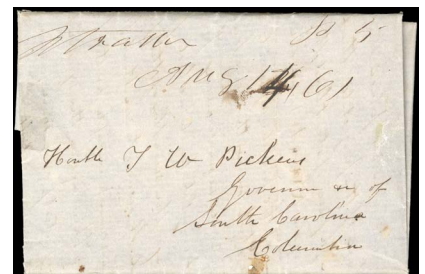 Pd 5
Aug 14 61
Honble F W Pickens
Governor &c of
South Carolina
Columbia